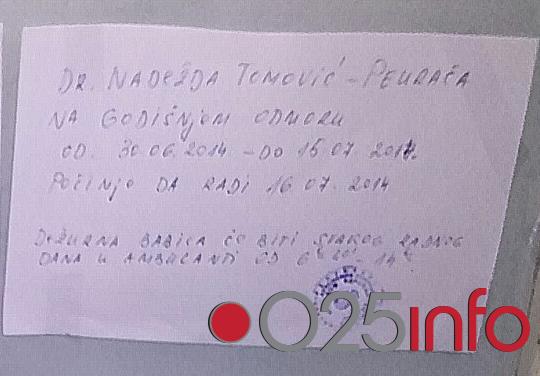 DR. NADEŽDA TOMOVIĆ - PEURAČA
NA GODIŠNJOM ODMORU
OD. 30.06.2014 - DO 15.07.2014.
POČINJE DA RADI 16.07.2014
DEŽURNA BABICA ĆE BITI SVAKOG RADNOG
DANA U AMBULANTI OD
025info